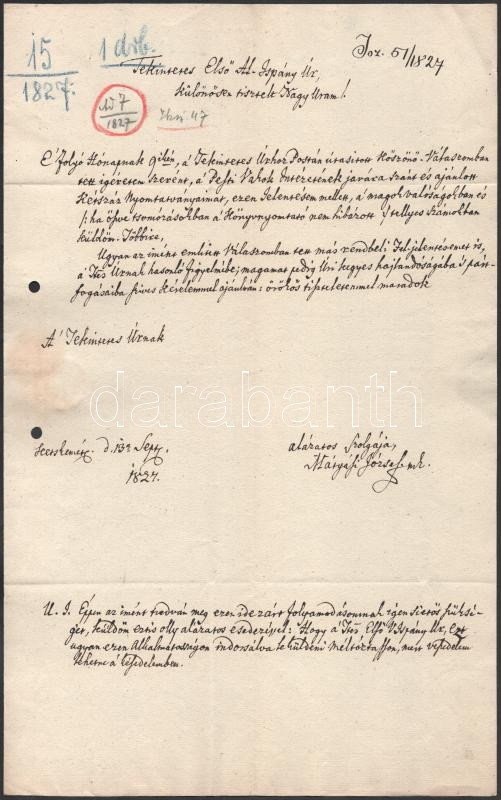 15
1827.
1 drb.
Joz. 51/1827
Tekintetes Első Al-Ispány Úr,
különösen tisztelt Nagy Uram!
No 7
1827
47
E' folyó Hónapnak 9ikén, a' Tekintetes Úrhoz Postán utasított Köszönő-Válaszomban
tett igéretem szerént, a' Pesti Vakok Intézetének javára szánt és ajánlott
Kétszáz Nyomtatványaimat, ezen Jelentésem mellett, a' magok valóságokban és
/:ha öszve tsomózásokban a' Könyvnyomtató nem hibázott:/ tellyes számokban
küldöm. Többire,
Ugyan az imént említett Válaszomban tett más rendbeli Feljelentésemet is,
a' Ttes Úrnak hasonló figyelmébe; magamat pedig Úri kegyes hajlandóságába 's párt-
fogásaiba szíves kérelemmel ajánlván: örökös tisztelettel maradok
A' Tekintetes Úrnak
darabanth
Ketskemét. d. 13a Sept.
1827.
alázatos Szolgája,
Mátyási József mk.
U. I. Éppen az imént tudván meg ezen ide zárt folyamodásomnak igen sietős szüksé-
gét, küldöm ezt is olly alázatos esedezéssel: Hogy a' Ttes Első V. Ispány Úr, ezt
ugyan ezen Alkalmatosságon indorsálva le küldeni méltóztasson, mert
lehetne a' késedelemben.